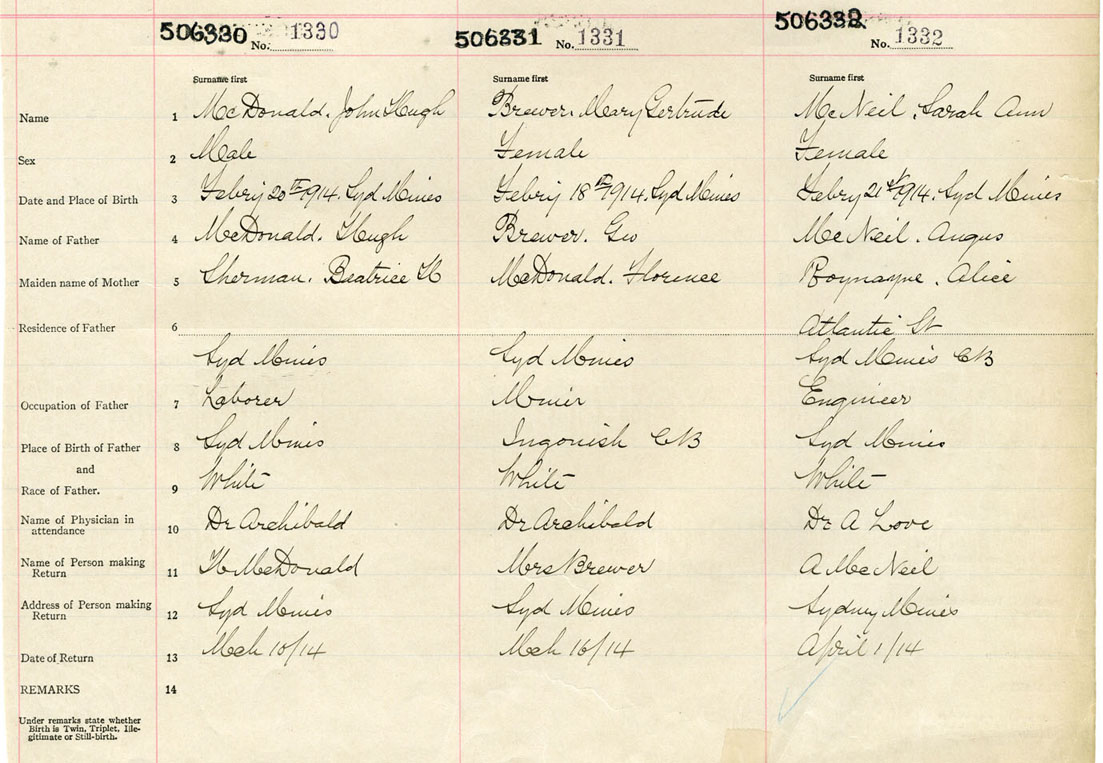 506330 No. 1330 506331 No. 1331 506332 No. 1332
Surname first Surname first Surname first
Name 1 McDonald. John Hugh Brewer. Mary Gertrude McNeil. Sarah Ann
Sex 2 Male Female Female
Date and Place of Birth 3 Febry 20th 1914. Syd Mines Febry 18th 1914. Syd Mines Febry 21st 1914. Syd Mines
Name of Father 4 McDonald. Hugh Brewer. Geo McNeil. Angus
Maiden name of Mother 5 Sherman. Beatrice H McDonald. Florence Alice
Residence of Father 6 Atlantic St
Syd Mines Syd Mines Syd Mines CB
Occupation of Father 7 Laborer Miner Engineer
Place of Birth of Father 8 Syd Mines Ingonish CB Syd Mines
and
Race of Father. 9 White White White
Name of Physician in
attendance 10 Dr Archibald Dr Archibald Dr A Love
Name of Person making
Return 11 H McDonald Mrs Brewer A McNeil
Address of Person making
Return 12 Syd Mines Syd Mines Sydney Mines
Date of Return 13 Mch 10/14 Mch 16/14 April 1/14
REMARKS 14
Under remarks state whether
Birth is Twin, Triplet, Ille-
gitimate or Still-birth.